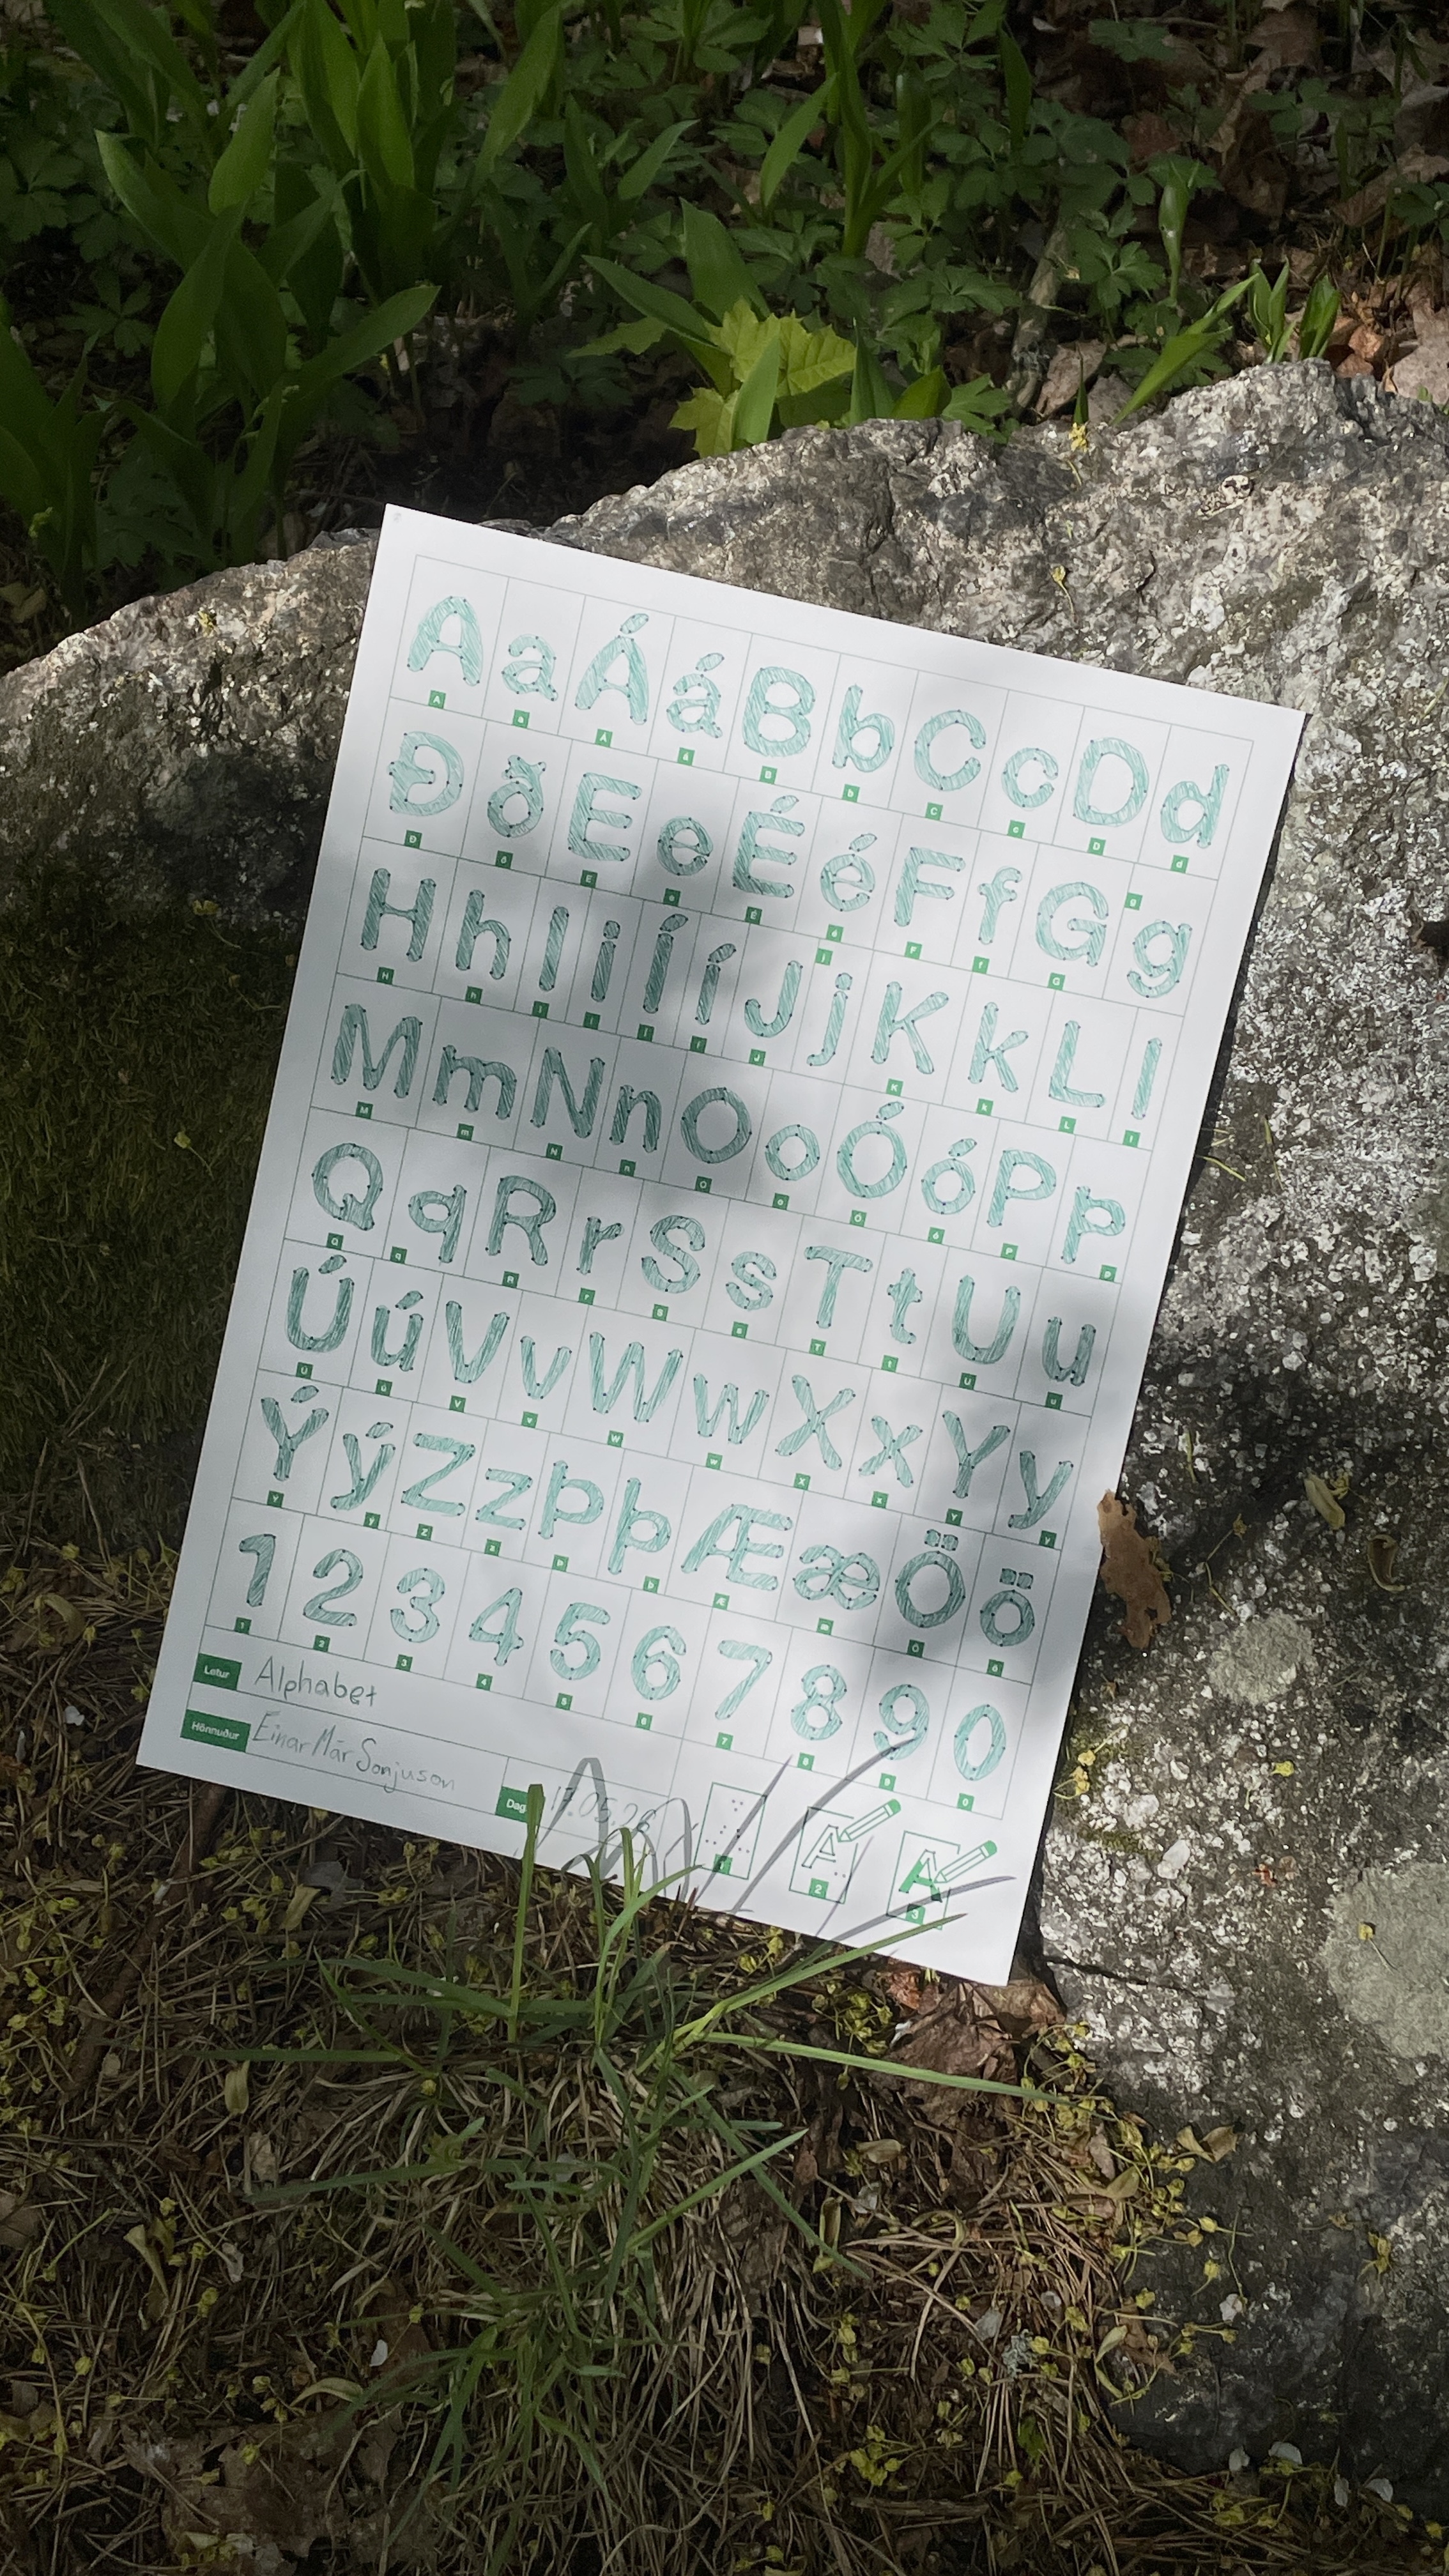 A a Á á B b C c D d
Ð ð E e É é F f G g
H h I i Í í J j K k L l
M m N n O o Ó ó P p
Q q R r S s T t U u
Ú ú V v W w X x Y y
Ý ý Z z Þ þ Æ æ Ö ö
1 2 3 4 5 6 7 8 9 0
Letur Alphabet
Hönnuður Einar Már Sonjuson
Dags
1 2 3